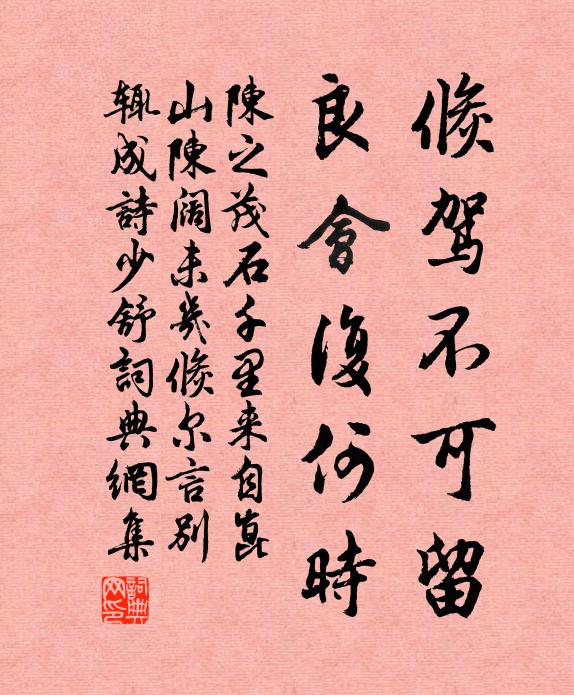 倐駕不可留
良會復何時
陳之茂石千里来自崑
山陳阔未幾倐尔言别
輙成詩少舒詞典網集
詞典网印